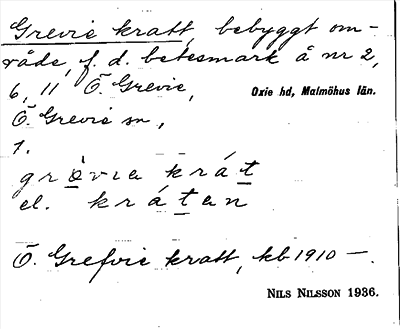 Grevie kratt, bebyggt om-
råde, f. d. betesmark å nr 2,
6, 11 Ö. Grevie,
Oxie hd, Malmöhus län.
Ö. Grevie sn,
1.
grèvia krát
el. kráten
Ö. Grefvie kratt, kb 1910 —.
NILS NILSSON 1936.